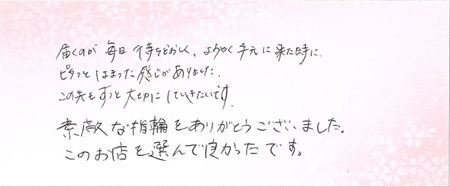 届くのが毎日待ちどおしく、ようやく手元に来た時に、
ピタッとはまった感じがありました。
この先もずっと大切にしていきたいです。
素敵な指輪をありがとうございました。
このお店を選んで良かったです。